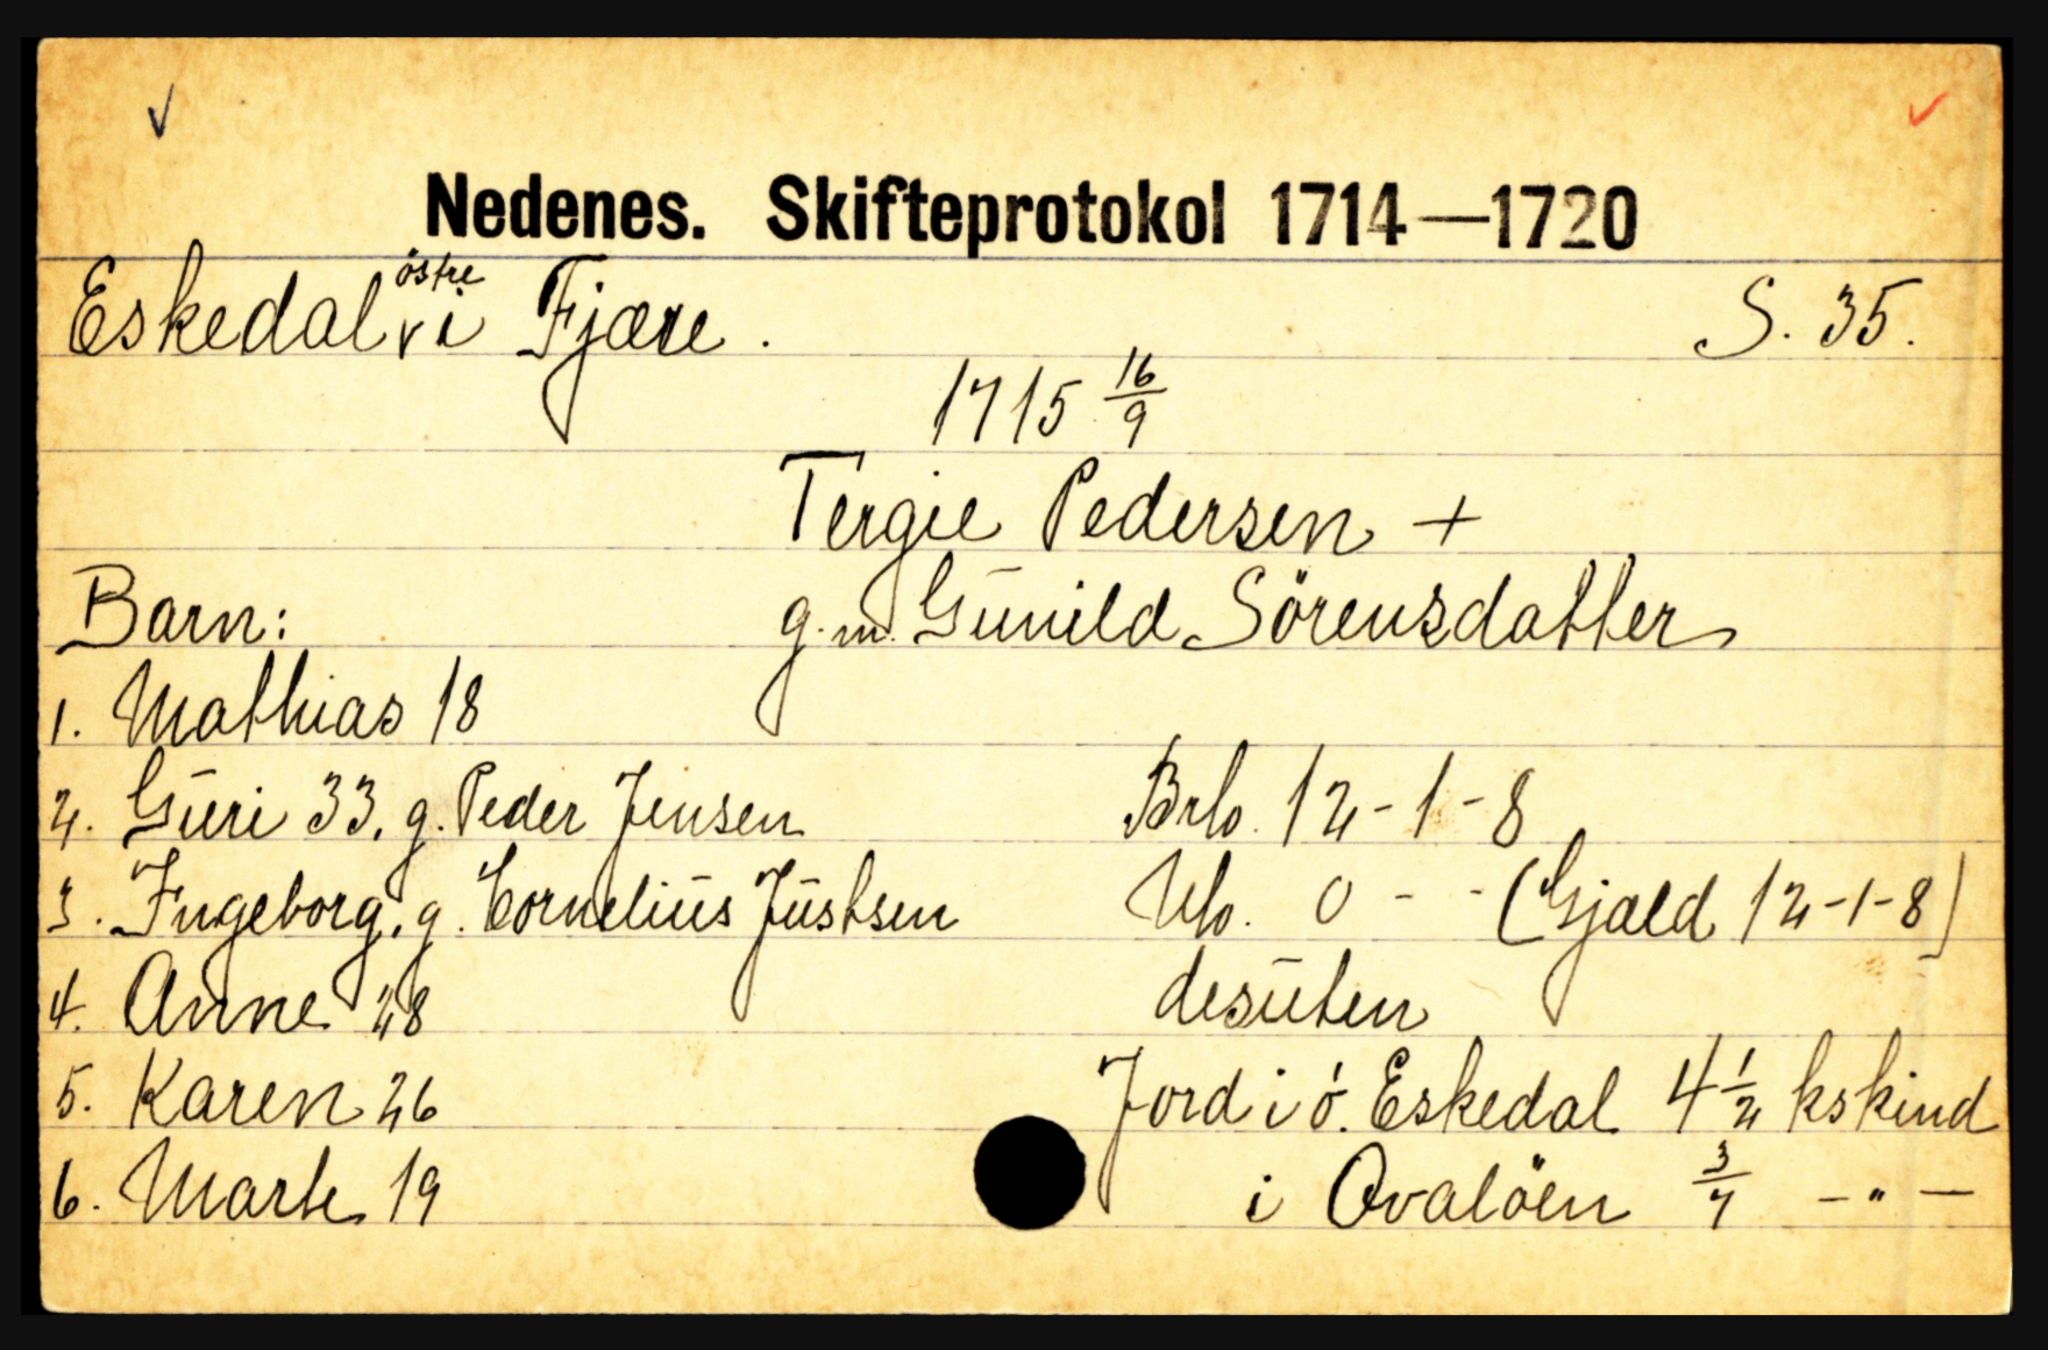 Nedenes. Skifteprotokol 1714—1720
Eskedal östre i Fjære. S. 35.
1715 16/9
Tergie Pedersen +
Barn: g. m. Gunild Sörensdatter
1. Mathias 18
2. Guri 33, g. Peder Jensen Brb. 12-1-8
3. Ingeborg, g. Cornelius Justsen Nb. 0 - - (Gjæld 12-1-8)
4. Anne 28 desuten
5. Karen 26 Jord i ö. Eskedal 4 1/2 kskind
6. Marte 19 i Qvalöen 3/4 -"-